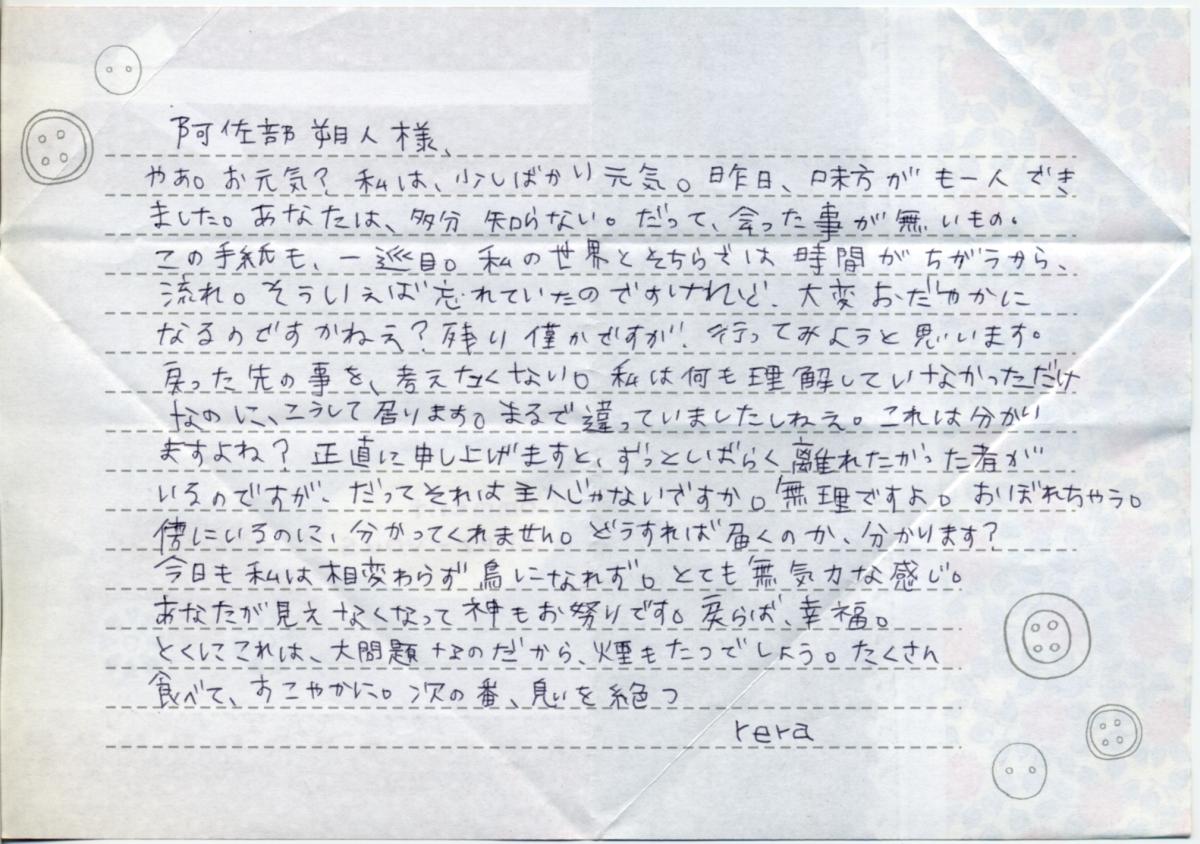 阿佐部 朔人 様、
やあ。お元気? 私は、少しばかり元気。昨日、味方がも一人でき
ました。あなたは、多分 知らない。だって、会った事が無いもの。
この手紙も、一巡目。私の世界とそちらでは 時間がちがうから、
流れ。そういえば忘れていたのですけれど、大変おだやかに
なるのですかねえ? 残り僅かですが、行ってみようと思います。
戻った先の事を、考えたくない。私は何も理解していなかっただけ
なのに、こうして居ります。まるで違っていましたしねえ。これは分かい
ますよね? 正直に申し上げますと、ずっとしばらく離れたかった者が
いるのですが、だってそれは主人じゃないですか。無理ですよ。おぼれちゃう。
傍にいるのに、分かってくれません。どうすれば届くのか、分かります?
今日も私は相変わらず鳥になれず。とても無気力な感じ。
あなたが見えなくなって神もお努りです。戻らば、幸福。
とくにこれは、大問題なのだから、煙もたつでしょう。たくさん
食べて、すこやかに。次の番、息いを絶つ
rera